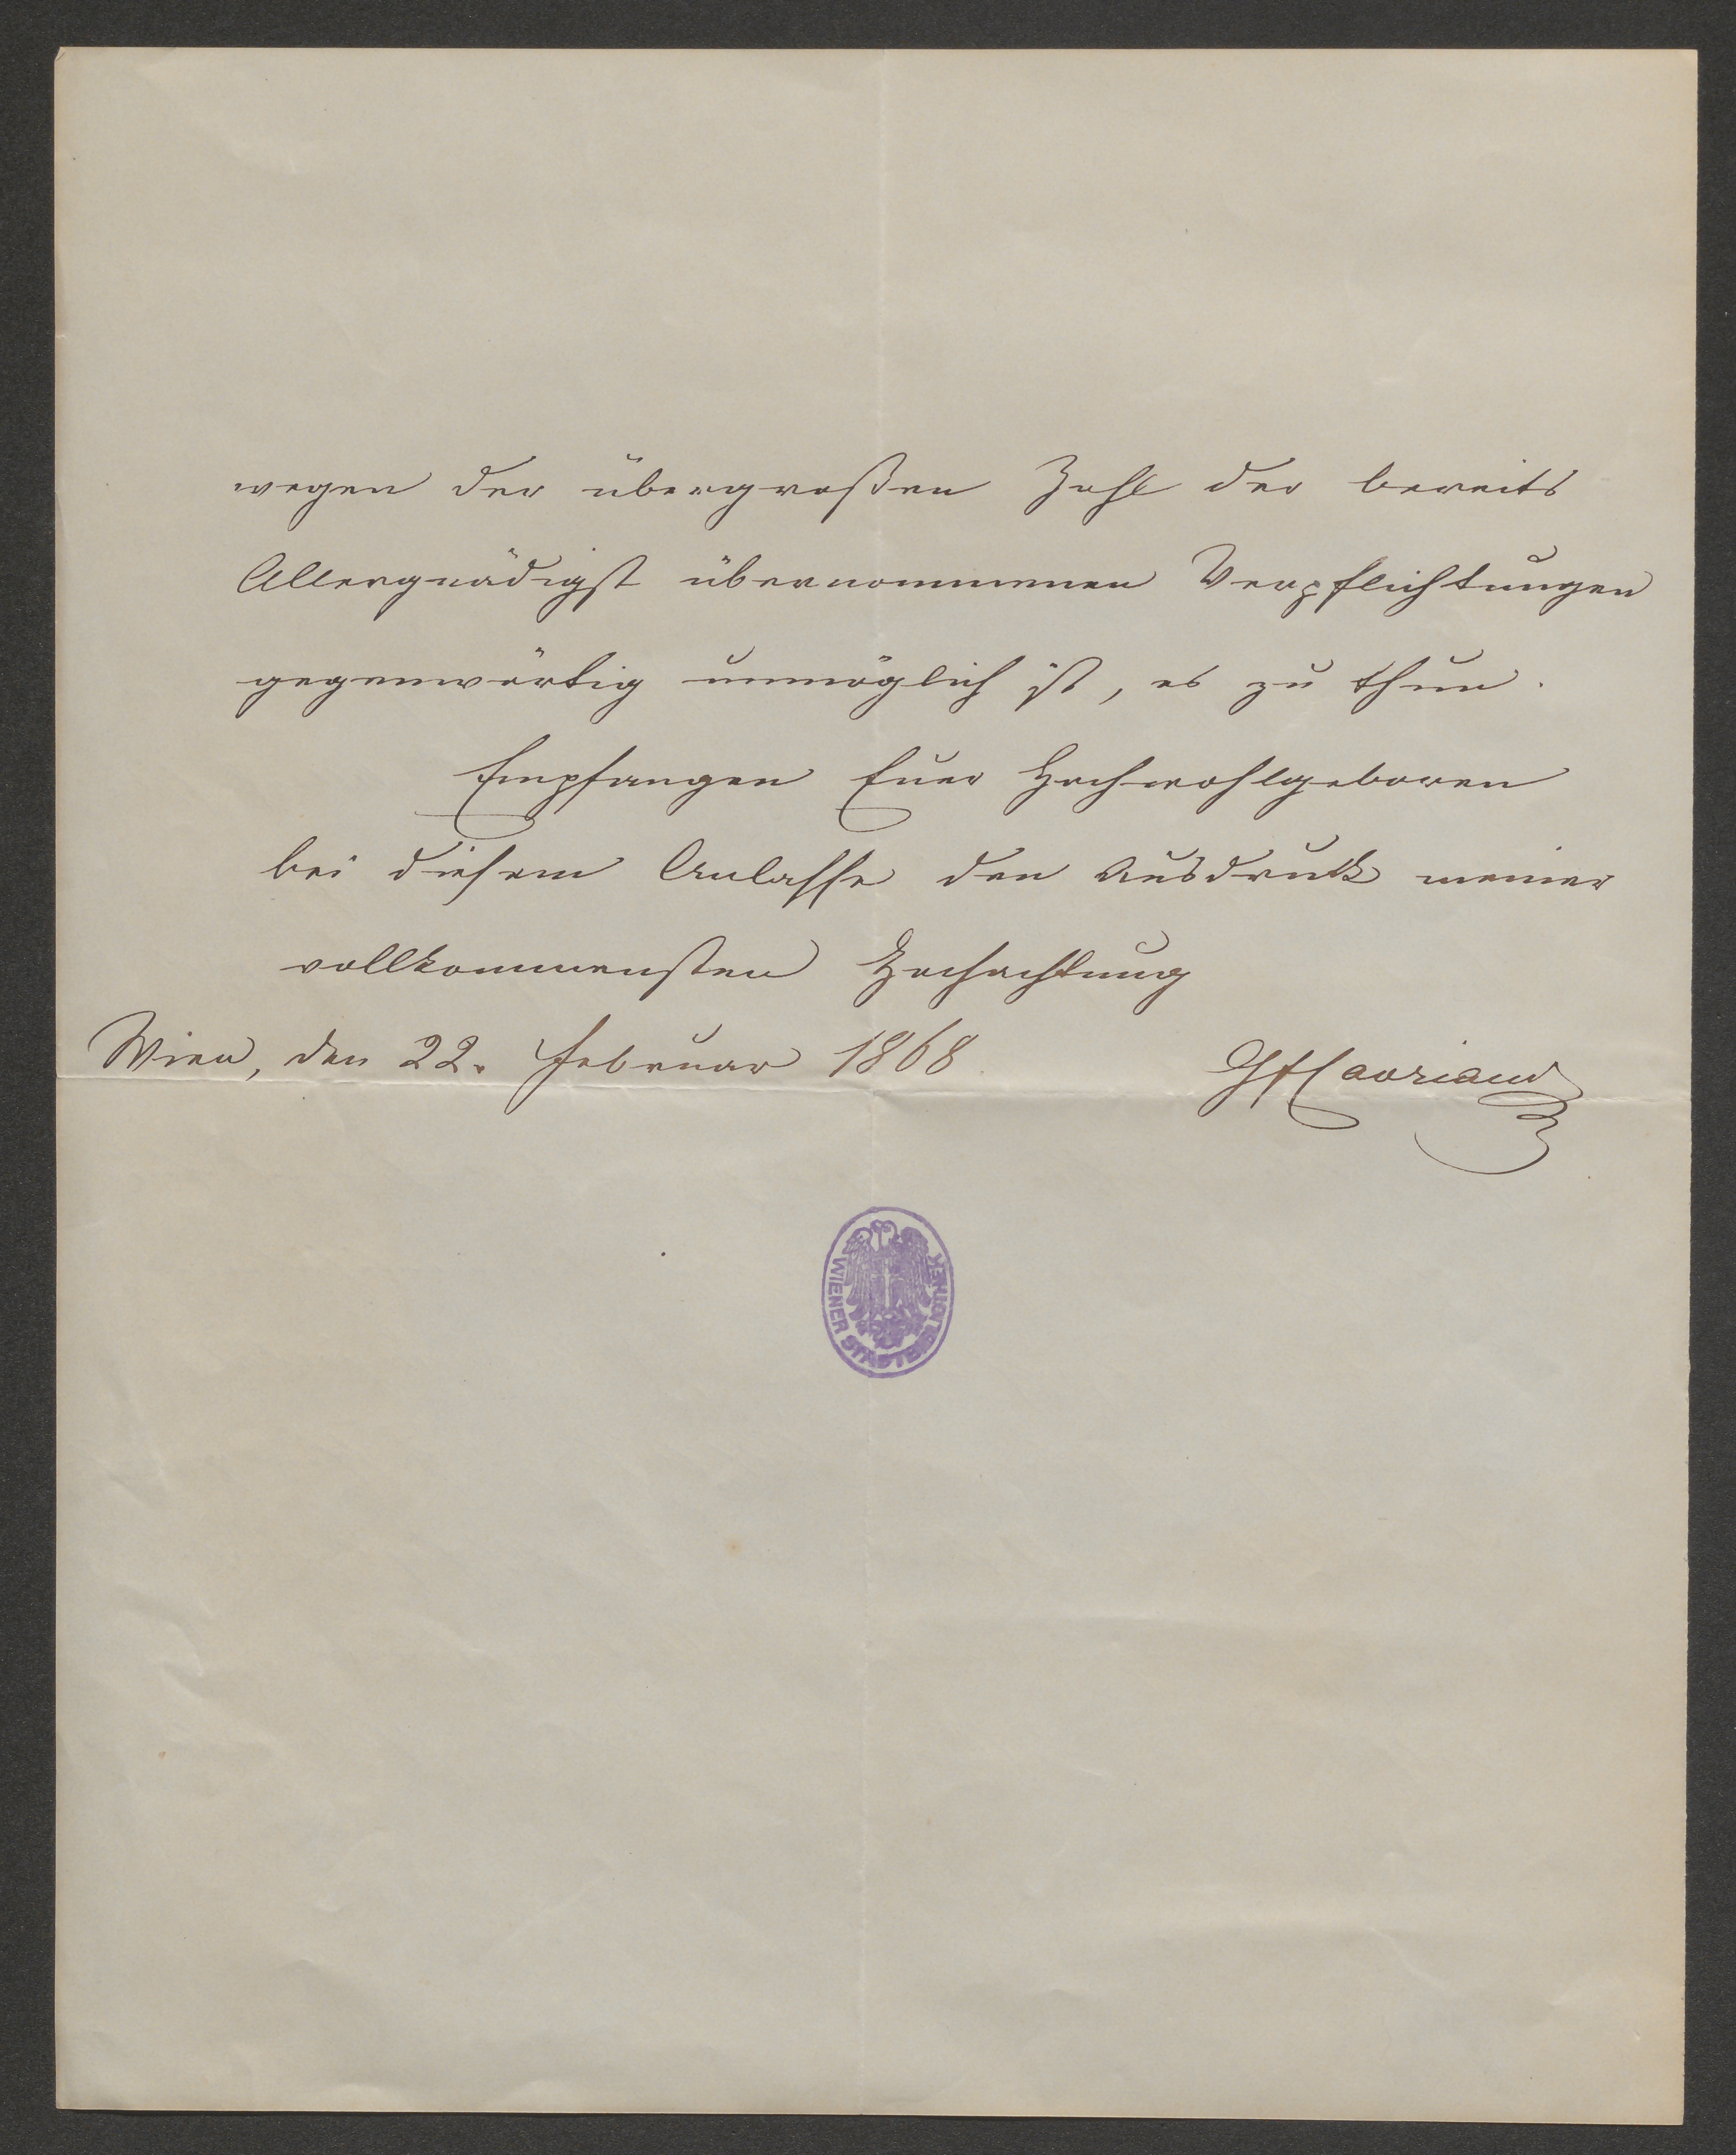 wegen der übergroßen Zahl der bereits
Allergnädigst übernommenen Verpflichtungen
gegenwärtig unmöglich ist, es zu thun.
Empfangen Euer Hochwohlgeboren
bei diesem Anlasse den Ausdruck meiner
vollkommensten Hochachtung
Wien, den 22. Februar 1868.
Cavriani
WIENER STADTBIBLIOTHEK